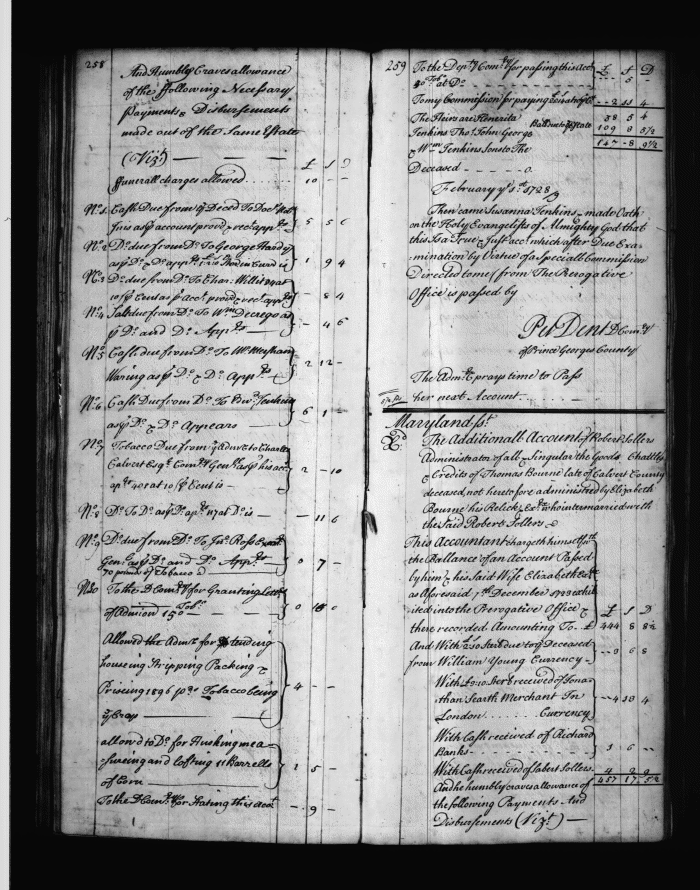 258
And Humbly Craves allowance
of the ffollowing Necessary
Payments & Disbursements
made out of the Same Estate
(Vizt) £ S D
ffunerall charges allowed 10 - -
No. 1 Cash Due from ye Deced To Docr
account provd & rect appr 5 5 6
No. 2 Do due from Do To George
as pr Do & Do appr 1 9 4
No. 3 Do due from Do To Chas Willitt at
10 pr Cent as pr Acct provd & rect appr - 8 4
No. 4 Cash due from Do To Wm
pr Do and Do Apprs - 4 6
No. 5 Cash due from Do To
Waring as pr Do & Do Apprs 2 12 -
No. 6 Cash Due from Do To Edwd Jenkins
as pr Do & Do Appears 6 1
No. 7 Tobacco Due from ye Admx to Charles
Calvert Esqr Comry Genl as pr his acct
appr 401 at 10 pr Cent is 2 - 10
No. 8 Do To Do as pr Do apr 117 at Do is - 11 6
No. 9 Do due from Do To Jno Ross
Genl as pr Do and Do Apprs
70 pounds of Tobacco 0 7 -
No. 10 To the D Comry for Granting Lettr
of Admion 150 Tobo
Allowed the Admx for tending
houseing Stripping Packing &
Priseing 1896 pds Tobacco being
ye Crop 4 - -
allowd to Do for Husking mea
-sureing and lofting 11 Barrells
of Corn 1 5 -
To the D Comry for Stating this acct - 9 -
259 To the Depty Comry for passing this Acct £ S D
50 Tobo at Do - 5 -
To my Commission for paying - 2 11 4
The Heirs are Henerita 38 5 4
Jenkins Thos John George Ballance of Estate 109 8 5½
& Wm Jenkins Sons to The 147 - 8 9½
Deceased
February ye 1728/9
Then came Susanna Jenkins & made Oath
on the Holy Evangelists of Almighty God that
this Is a True & Just acct which after Due Exa
mination by Virtue of a speciall Commission
Directed to me from The Prerogative
Office is passed by
Pet Dent D Comry
of Prince Georges County
The Admx prays time to Pass
her next Account
Maryland sst
The Additionall Account of Robert Sollers
Administrator of all & Singular the Goods Chattles
& Credits of Thomas Bourne late of Calvert County
deceased, not heretofore administred by Elizabeth
Bourne his Relict & Exx who intermarried with
the Said Robert Sollers
This Accountant chargeth himself with
the Ballance of an Account Passed
by him & his Said Wife Elizabeth Exx
as Aforesaid 7th December 1723 exhib
ited into the Prerogative Office & £ S D
there recorded Amounting To £ 444 8 8½
And With £ Ster due to ye Deceased
from William Young Currency - 9 6 8
With £ Ster received of Jona
than Searth Merchant In
London Currency
With Cash received of Richard
Banks 5 6 -
With Cash received of Sabert Sollers 4 2 9
457 17 5½
And he humbly craves allowance of
the following Payments And
Disbursements (Vizt)